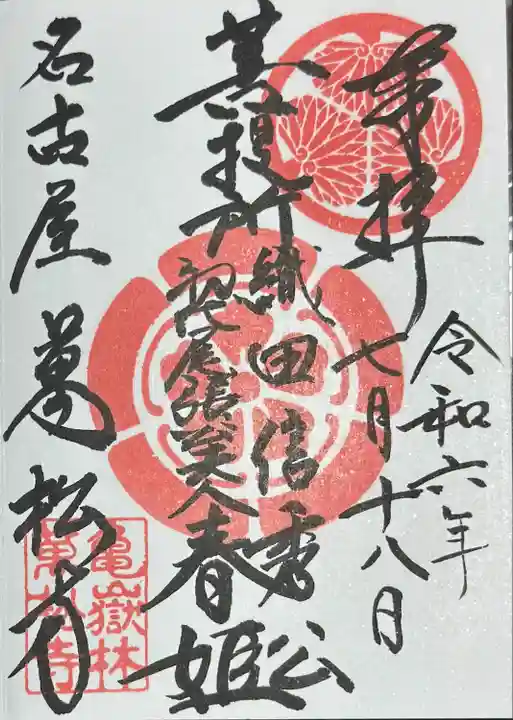 奉拝
令和六年
七月十八日
菩提所
織田信秀公
初代尾張藩主夫人
春姫
名古屋
萬松寺
亀嶽林
萬松寺